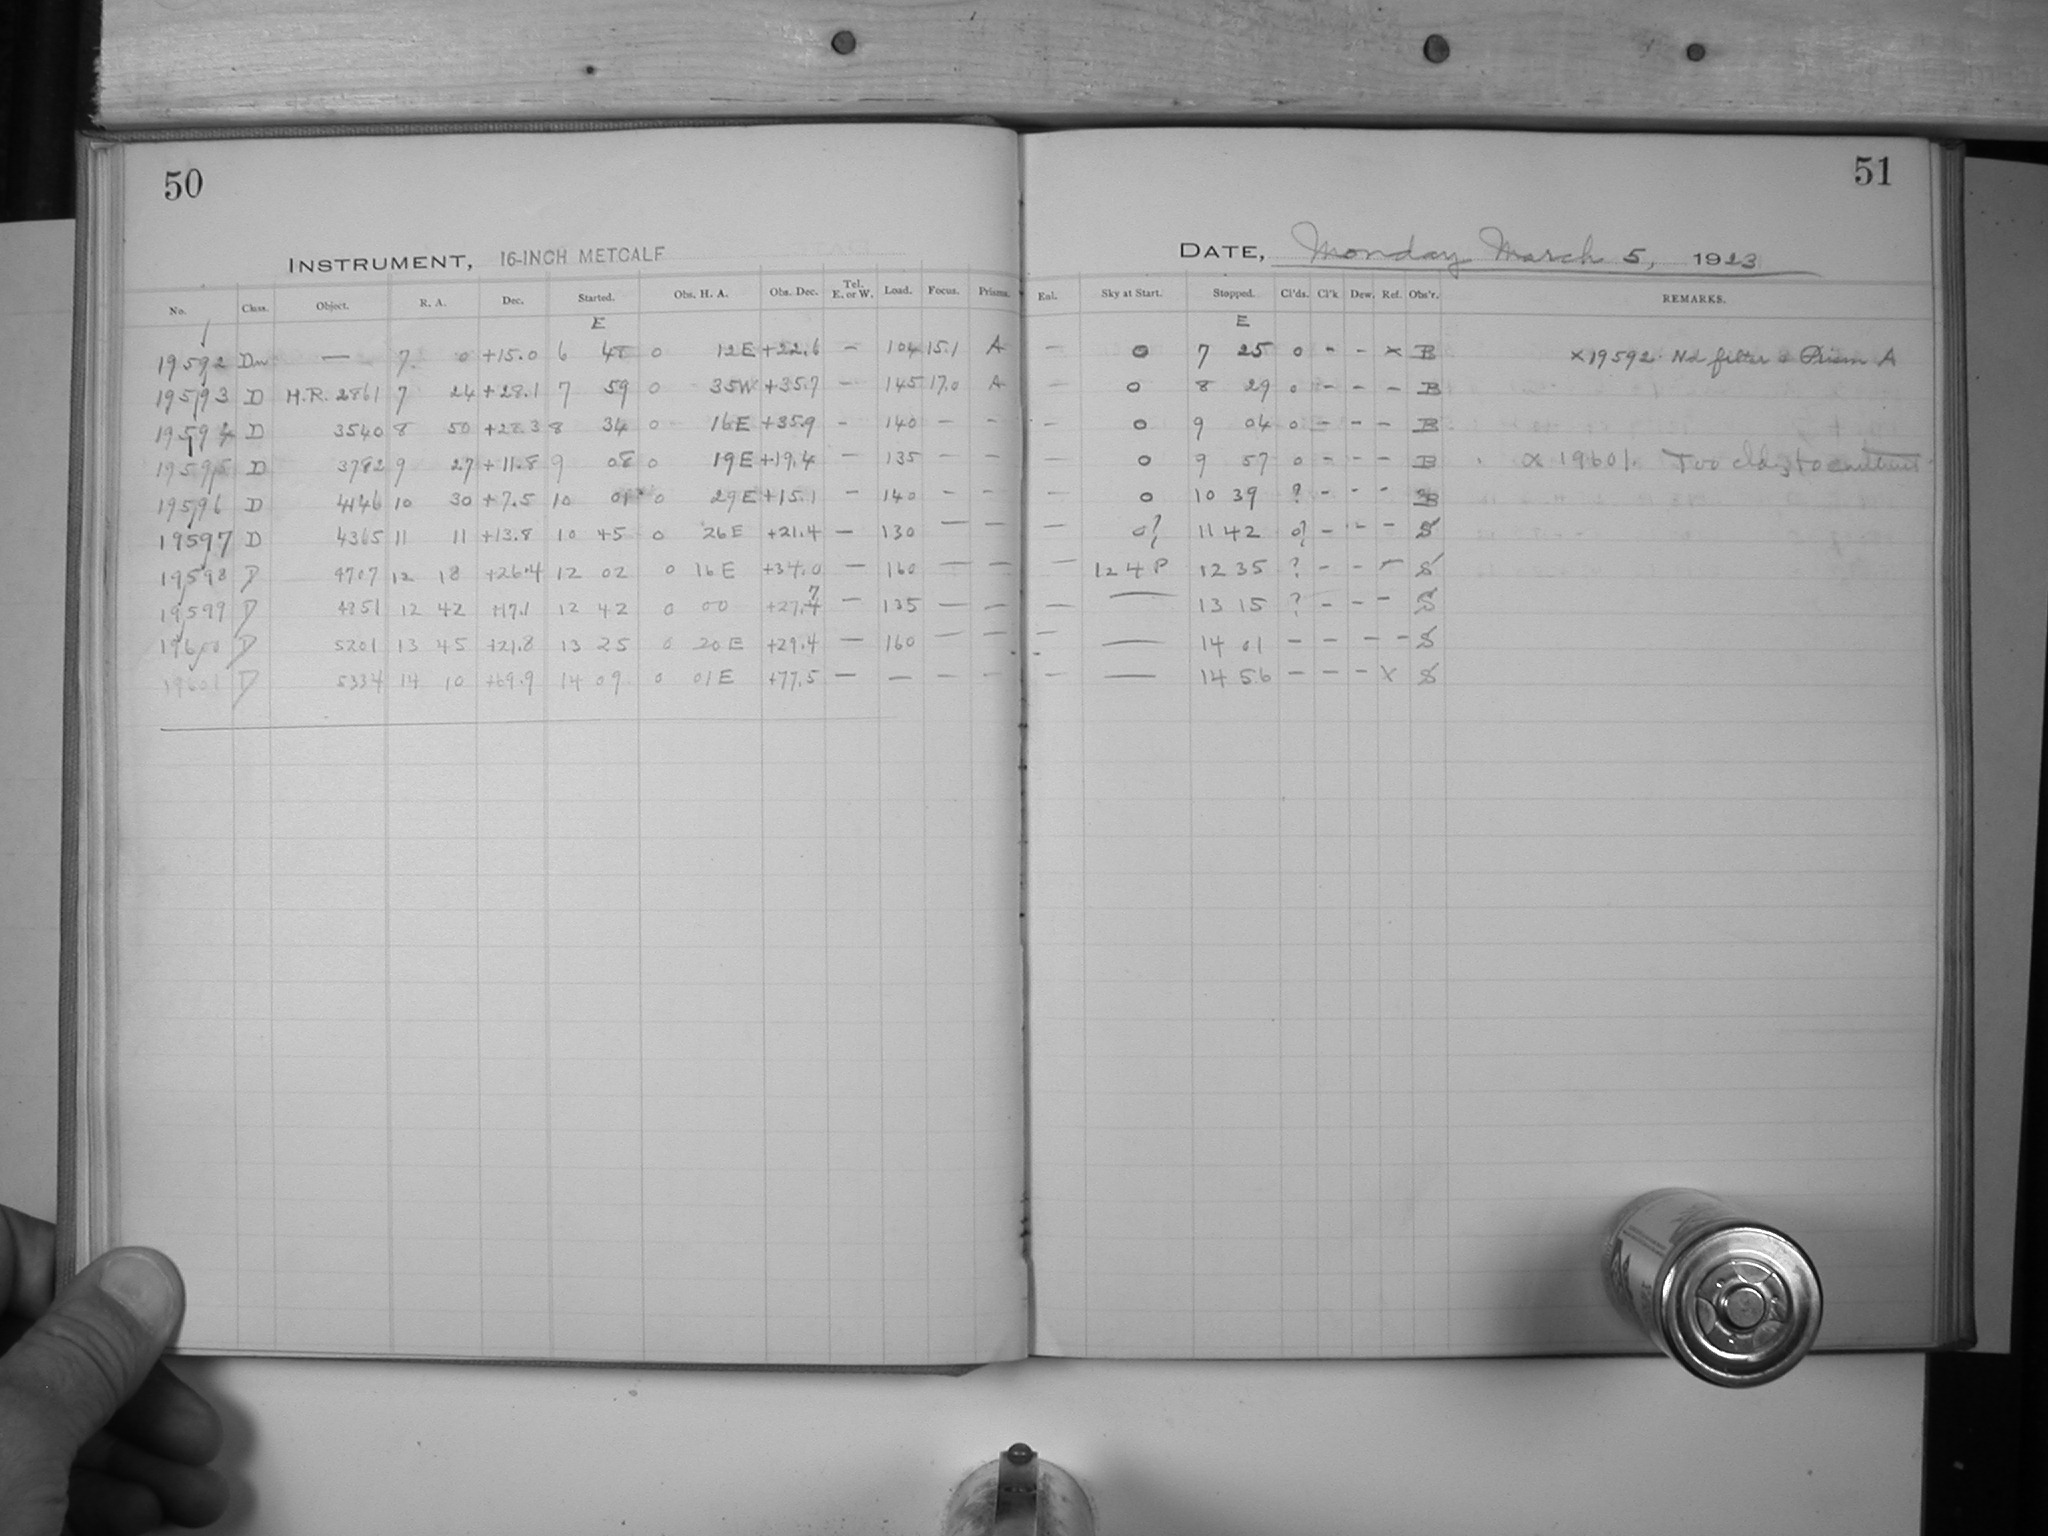 50
51
INSTRUMENT, 16-INCH METCALF
DATE, Monday March 5, 1923
No. Class. Object. R. A. Dec. Started. Obs. H. A. Obs. Dec. Tel. E. or W. Load. Focus. Prisms. Enl. Sky at Start. Stopped. Cl'ds. Cl'k Dew. Ref. Obs'r. REMARKS.
E E
19592 Dn — 7 0 +15.0 6 48 0 12E +22.6 — 104 15.1 A — 0 7 25 0 - - x B x19592. Nd filter & Prism A
19593 D H.R. 2861 7 24 +28.1 7 59 0 35W +35.7 — 145 17.0 A — 0 8 29 0 - - - B
19594 D 3540 8 50 +28.3 8 34 0 16E +35.9 - 140 — - — 0 9 04 0 - - - B
19595 D 3782 9 27 +11.8 9 08 0 19E +19.4 — 135 — - — 0 9 57 0 - - - B x 19601. Too
19596 D 4146 10 30 +7.5 10 01 0 29E +15.1 — 140 — - — 0 10 39 ? - - - B
19597 D 4365 11 11 +13.8 10 45 0 26E +21.4 — 130 — — — 0? 11 42 0? - - - S
19598 D 4707 12 18 +26.4 12 02 0 16E +34.0 — 160 — — — 12 4 P 12 35 ? - - - S
7
19599 D 4851 12 42 +17.1 12 42 0 00 +27.4 — 135 — — — — 13 15 ? - - - S
19600 D 5201 13 45 +21.8 13 25 0 20E +29.4 — 160 — — — — 14 01 - - - - S
19601 D 5334 14 10 +69.9 14 09 0 01E +77.5 — — — — — — 14 56 - - - X S